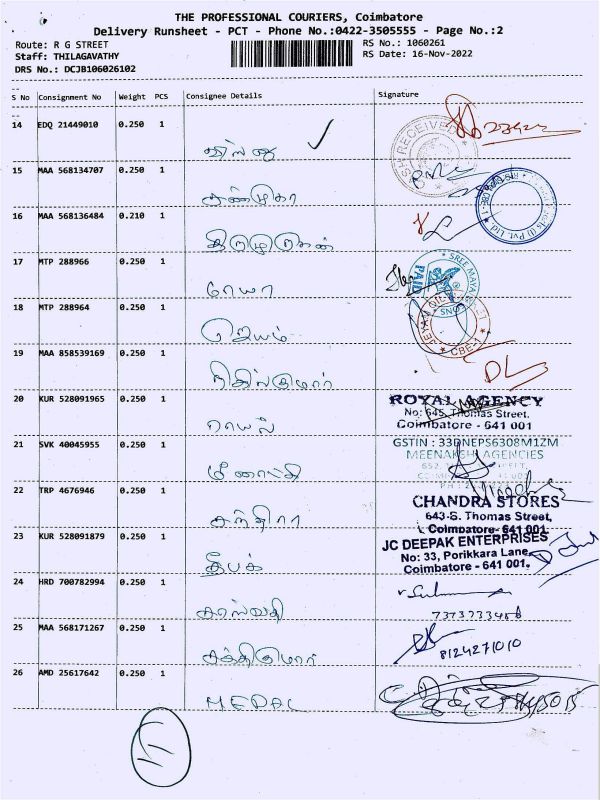 THE PROFESSIONAL COURIERS, Coimbatore
Delivery Runsheet - PCT - Phone No.:0422-3505555 - Page No.:2
Route: R G STREET
RS No.: 1060261
Staff: THILAGAVATHY
RS Date: 16-Nov-2022
DRS No.: DCJB106026102
S No Consignment No Weight PCS Consignee Details Signature
14 EDQ 21449010 0.250 1
CASH RECEIVED
15 MAA 568134707 0.250 1
சண்முகா
16 MAA 568136484 0.210 1
திருமுருகன்
(I) Pvt. Ltd. CBE-1
17 MTP 288966 0.250 1
ரேயா
SREE MAYA
PAID
18 MTP 288964 0.250 1
ஜெயம்
OIL
SONS
CBE-1
19 MAA 858539169 0.250 1
நிதிஸ்குமார்
20 KUR 528091965 0.250 1
ராயல்
ROYAL AGENCY
No: 645, Thomas Street,
Coimbatore - 641 001
21 SVK 40045955 0.250 1
மீனாட்சி
GSTIN : 33DNEPS6308M1ZM
MEENAKSHI AGENCIES
22 TRP 4676946 0.250 1
சந்திரா
CHANDRA STORES
643-S. Thomas Street,
Coimbatore- 641 001.
23 KUR 528091879 0.250 1
தீபக்
JC DEEPAK ENTERPRISES
No: 33, Porikkara Lane,
Coimbatore - 641 001.
24 HRD 700782994 0.250 1
சரஸ்வதி
25 MAA 568171267 0.250 1
சக்திகுமார்
8124271010
26 AMD 25617642 0.250 1
MEDAL